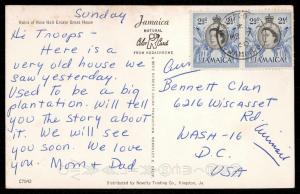 Ruins of Rose Hall Greater Great House
Sunday
Hi Troops -
Here is a
very old house we
saw yesterday.
Used to be a big
plantation. Will tell
you the story about
it. We will see
you soon. We love
you. Mom + Dad
C7942
Jamaica
NATURAL
Color
FROM KODACHROME
2½D 2½D
JAMAICA JAMAICA
Bennett Clan
6216 Wiscasset
Rd.
WASH-16
D.C.
USA
Distributed by Novelty Trading Co., Kingston, Ja.